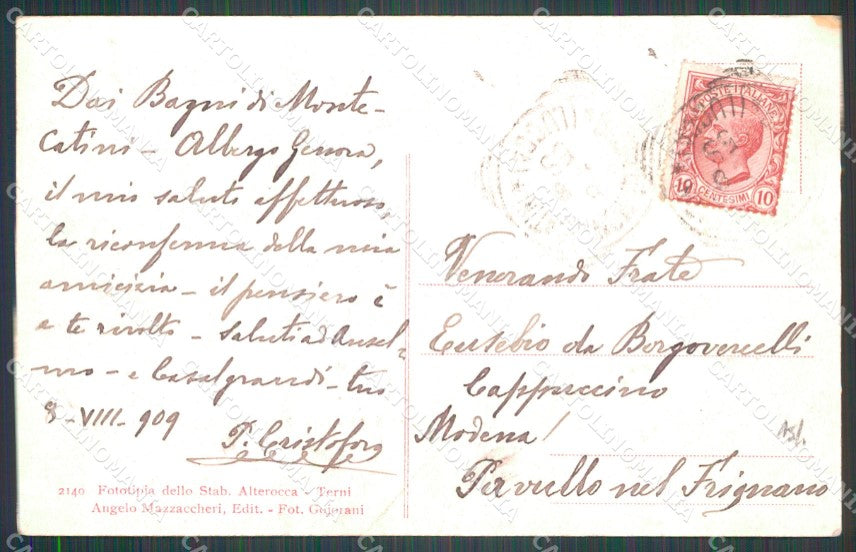 Dai Bagni di Monte-
Catini - Albergo Genova,
il mio saluto affettuoso,
la riconferma della mia
amicizia - il pensiero è
a te rivolto - saluti ad Ansel-
mo - e Casalgrandi - tuo
8-VIII-909
P. Cristoforo
2140 Fototipia dello Stab. Alterocca - Terni
Angelo Mazzaccheri, Edit. - Fot.
POSTE ITALIANE
10 CENTESIMI 10
Venerando Frate
Eusebio da Borgovercelli
Cappuccino
Modena/
Pavullo nel Frignano
CARTOLINOMANIA